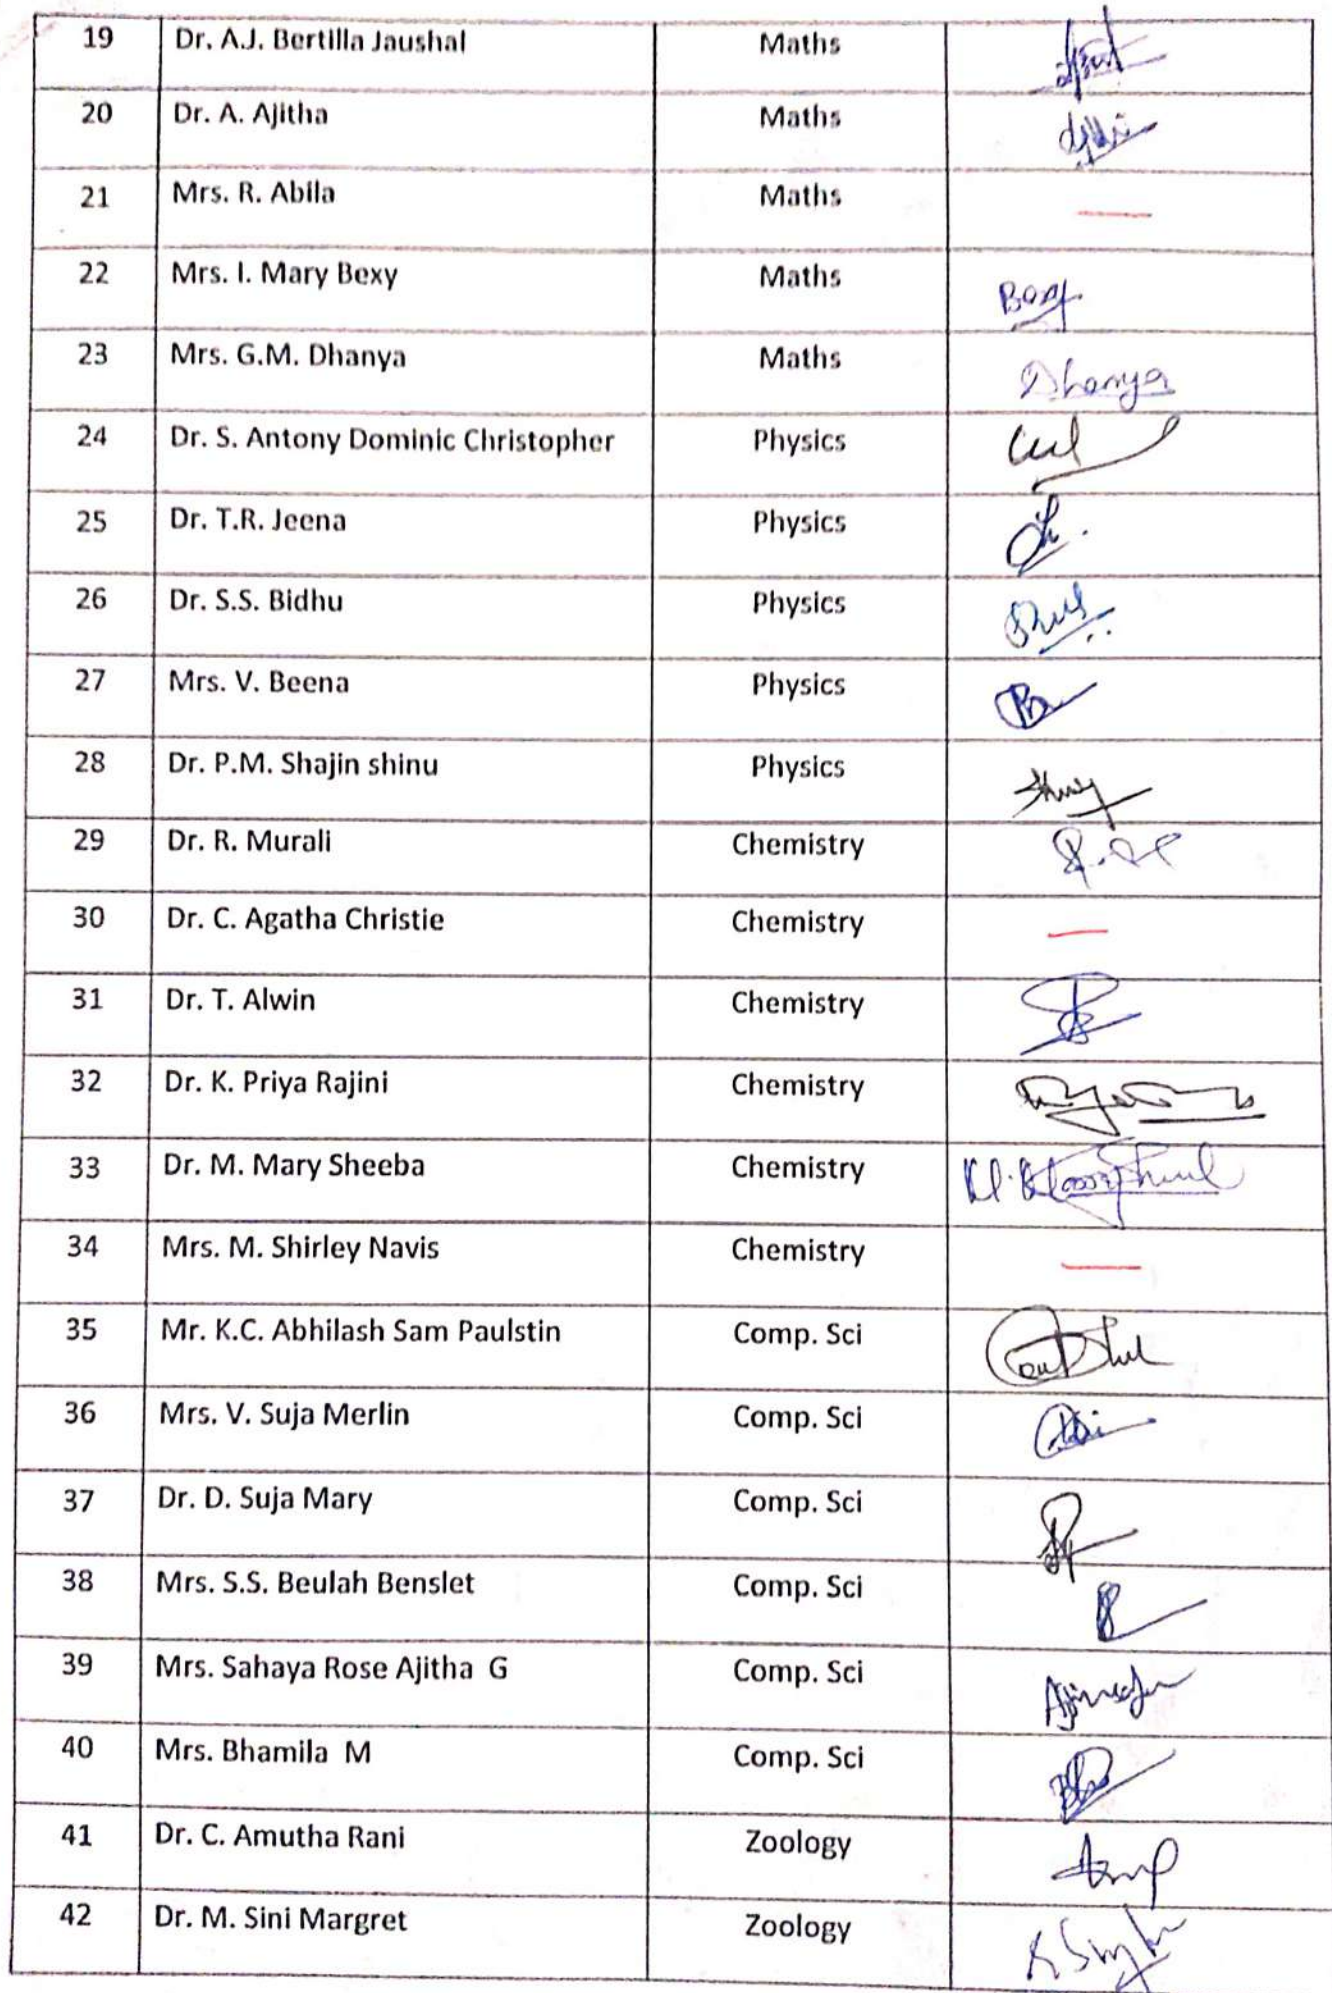 19 Dr. A.J. Bertilla Jaushal Maths
20 Dr. A. Ajitha Maths
21 Mrs. R. Abila Maths
22 Mrs. I. Mary Bexy Maths Bexy
23 Mrs. G.M. Dhanya Maths Dhanya
24 Dr. S. Antony Dominic Christopher Physics
25 Dr. T.R. Jeena Physics
26 Dr. S.S. Bidhu Physics
27 Mrs. V. Beena Physics
28 Dr. P.M. Shajin shinu Physics
29 Dr. R. Murali Chemistry
30 Dr. C. Agatha Christie Chemistry
31 Dr. T. Alwin Chemistry
32 Dr. K. Priya Rajini Chemistry
33 Dr. M. Mary Sheeba Chemistry
34 Mrs. M. Shirley Navis Chemistry
35 Mr. K.C. Abhilash Sam Paulstin Comp. Sci
36 Mrs. V. Suja Merlin Comp. Sci
37 Dr. D. Suja Mary Comp. Sci
38 Mrs. S.S. Beulah Benslet Comp. Sci
39 Mrs. Sahaya Rose Ajitha G Comp. Sci
40 Mrs. Bhamila M Comp. Sci
41 Dr. C. Amutha Rani Zoology
42 Dr. M. Sini Margret Zoology